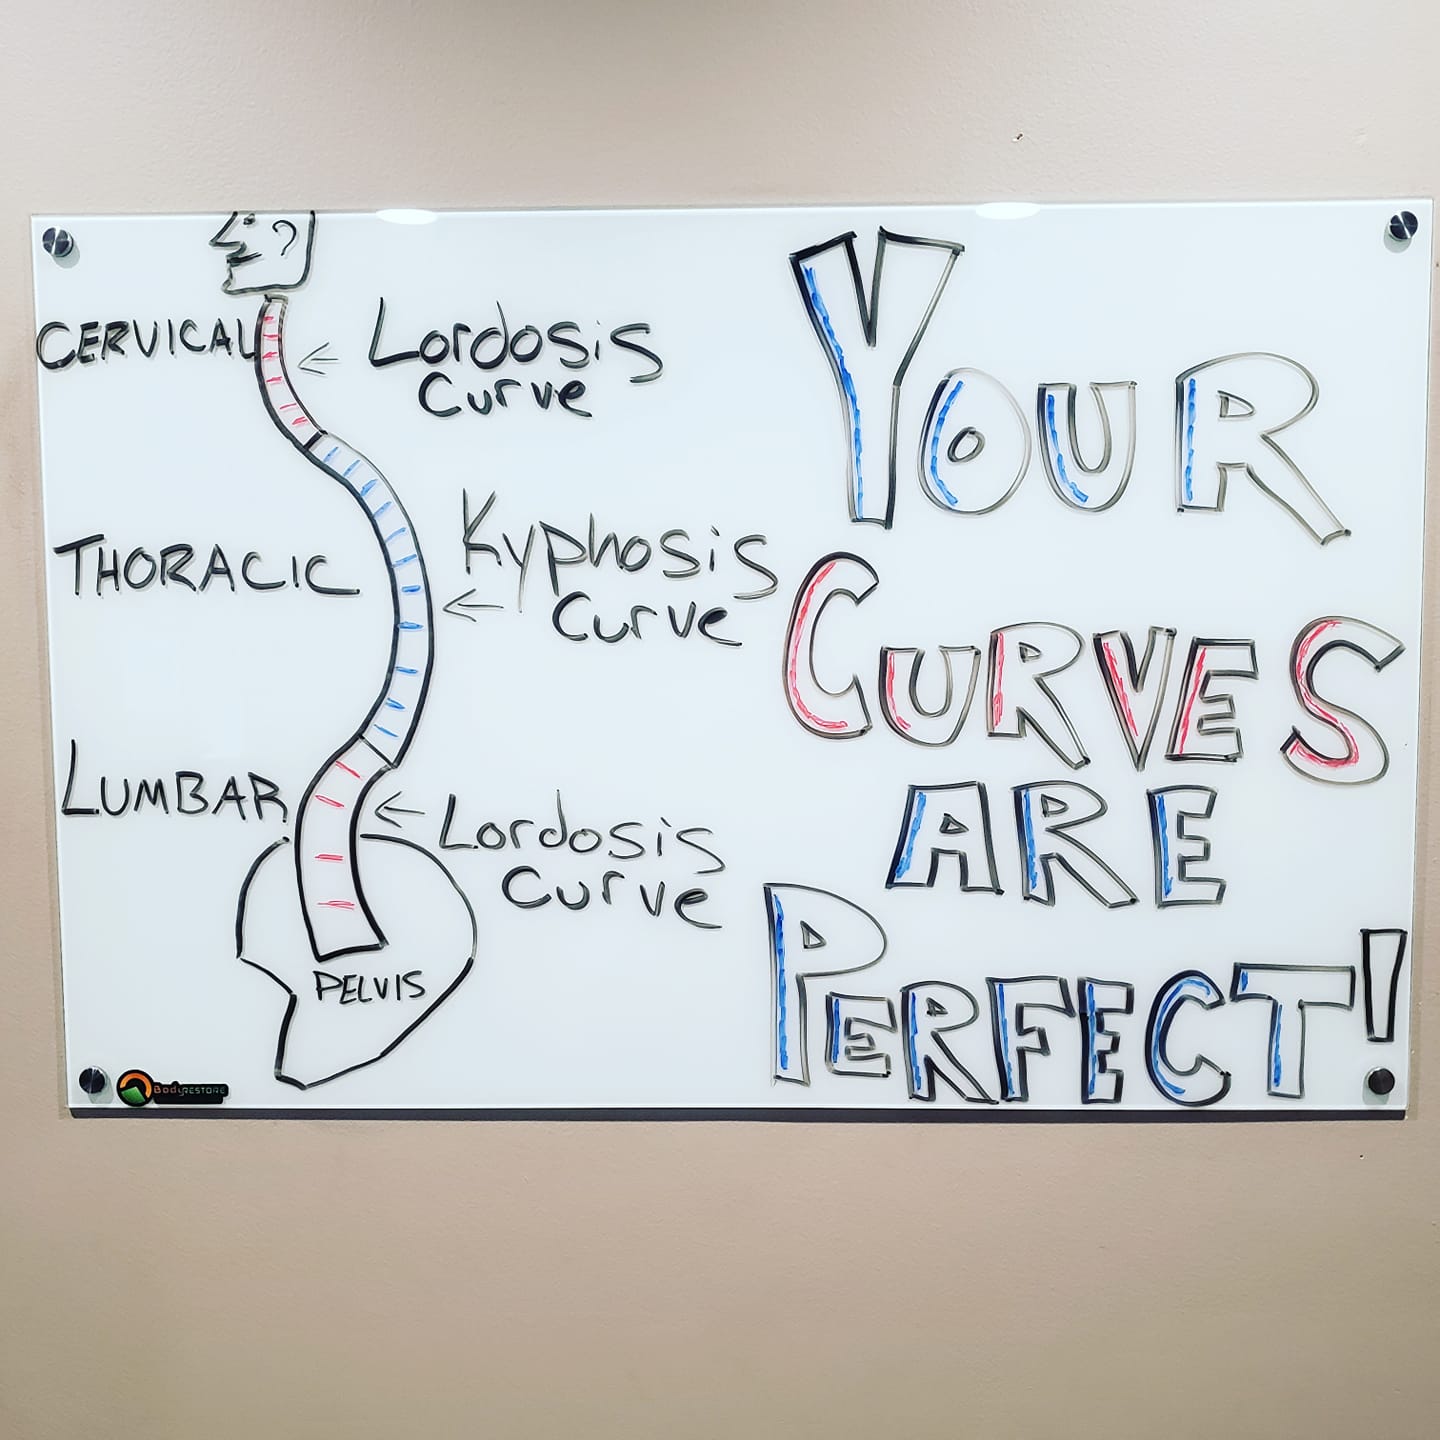 CERVICAL
Lordosis
Curve
THORACIC
Kyphosis
Curve
LUMBAR
Lordosis
Curve
PELVIS
BodyRESTORE
YOUR
CURVES
ARE
PERFECT!